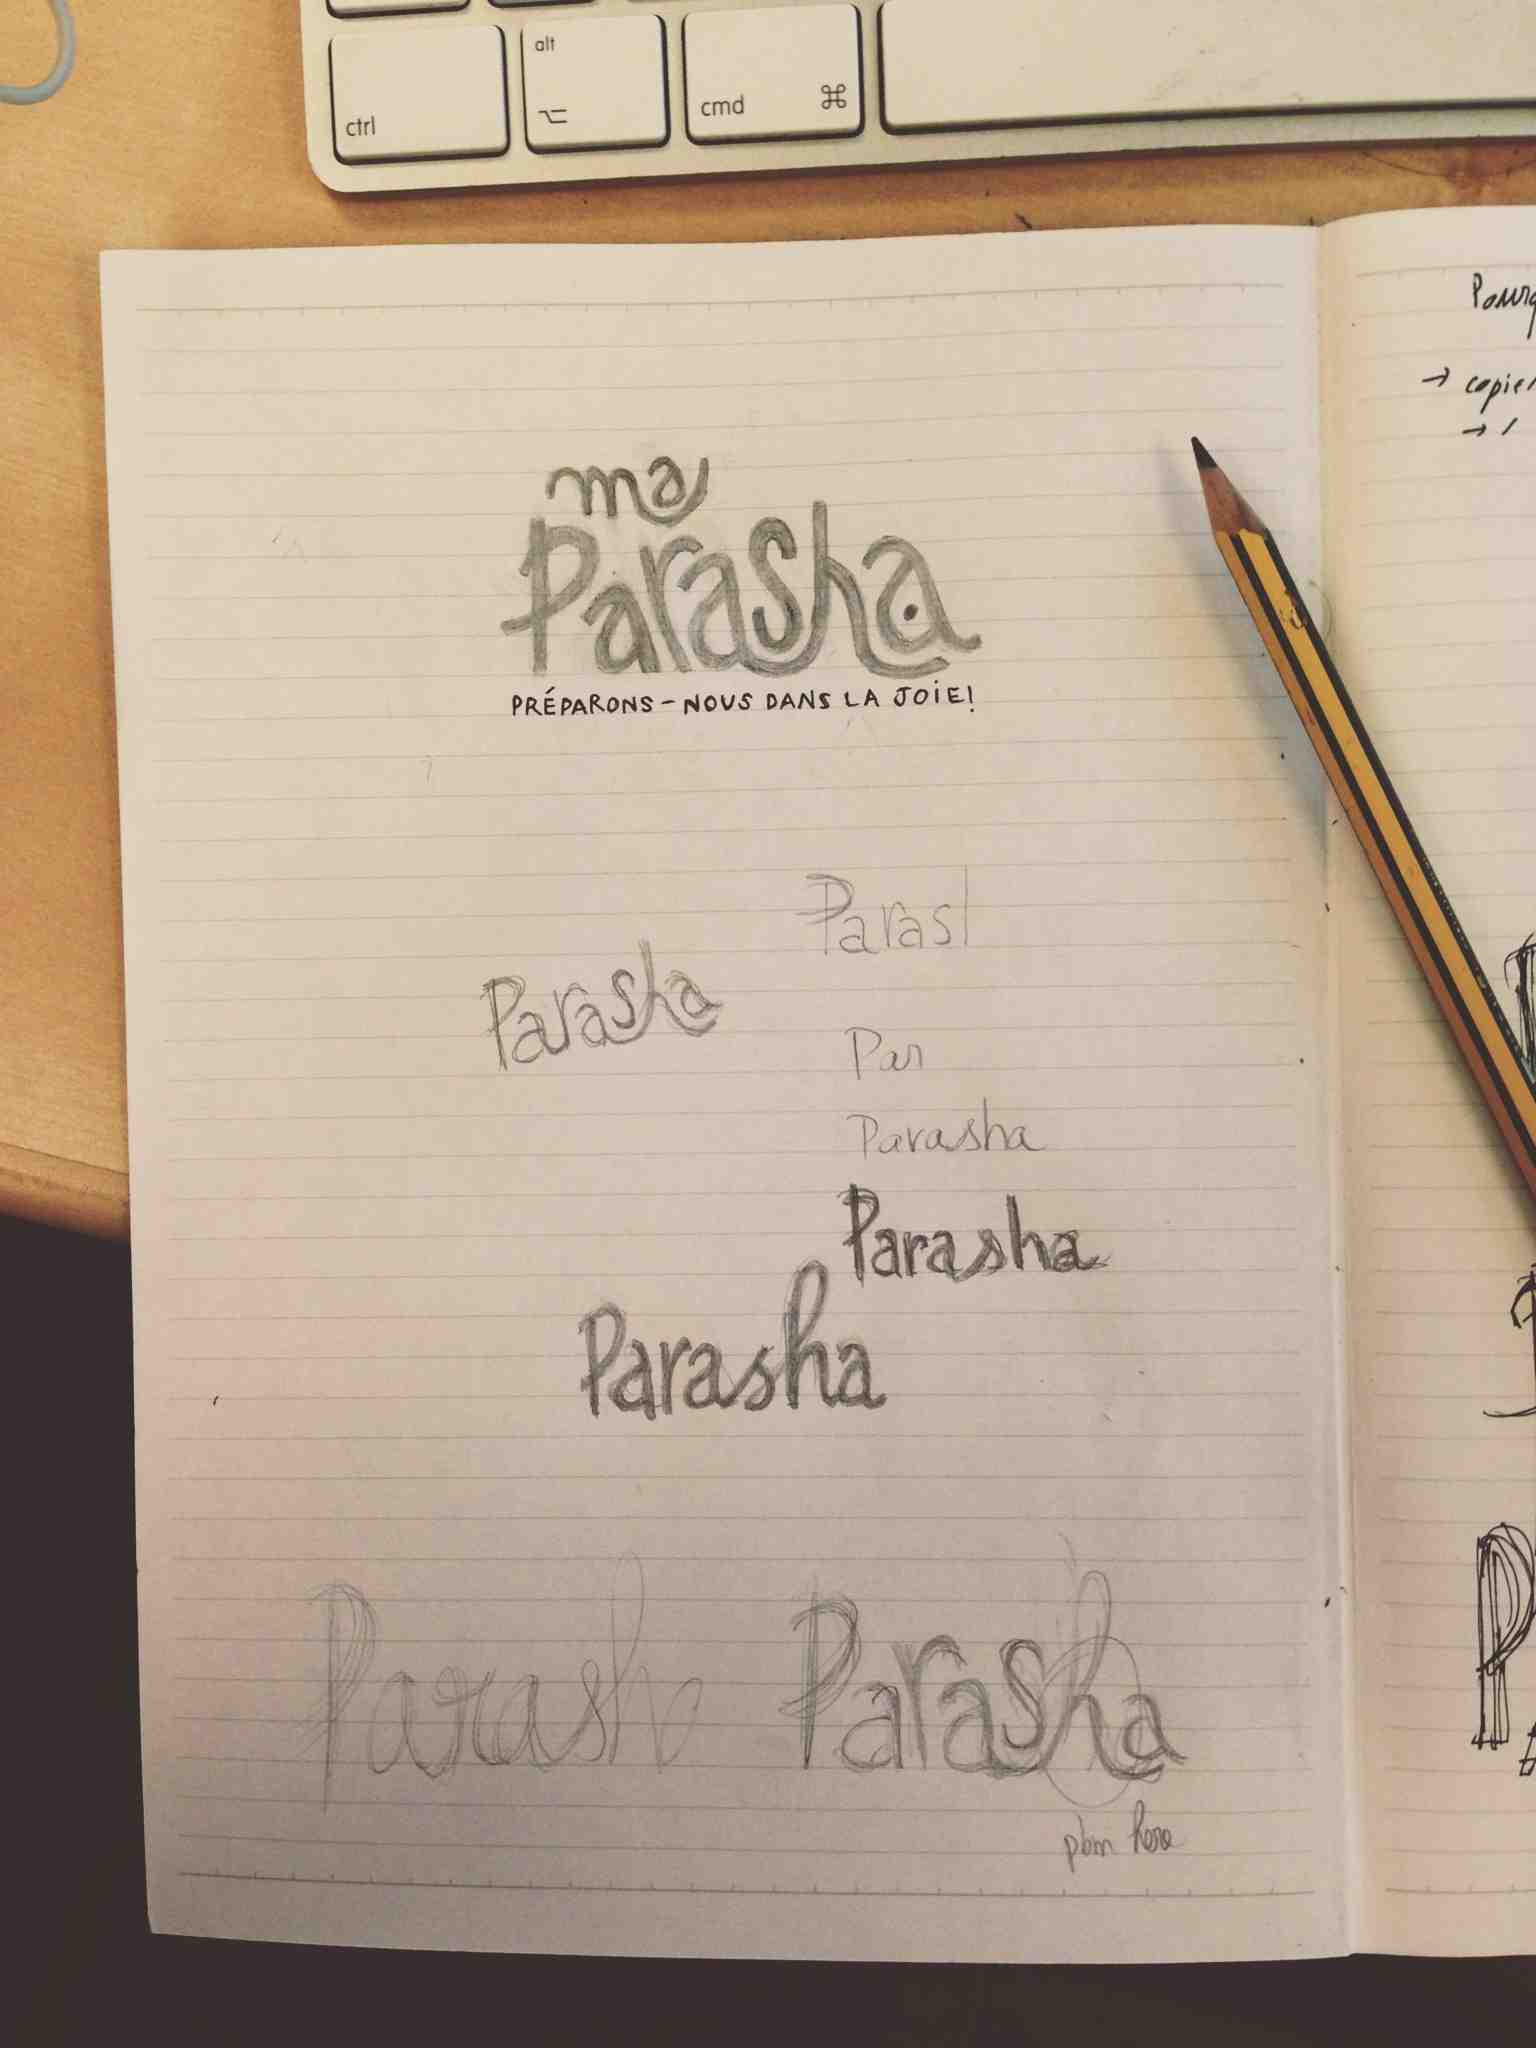 alt
ctrl
cmd ⌘
ma
Parasha
PRÉPARONS-NOUS DANS LA JOIE!
Parasl
Parasha
Par
Parasha
Parasha
Parasha
Parash
Parasha
pbm here
→ copier